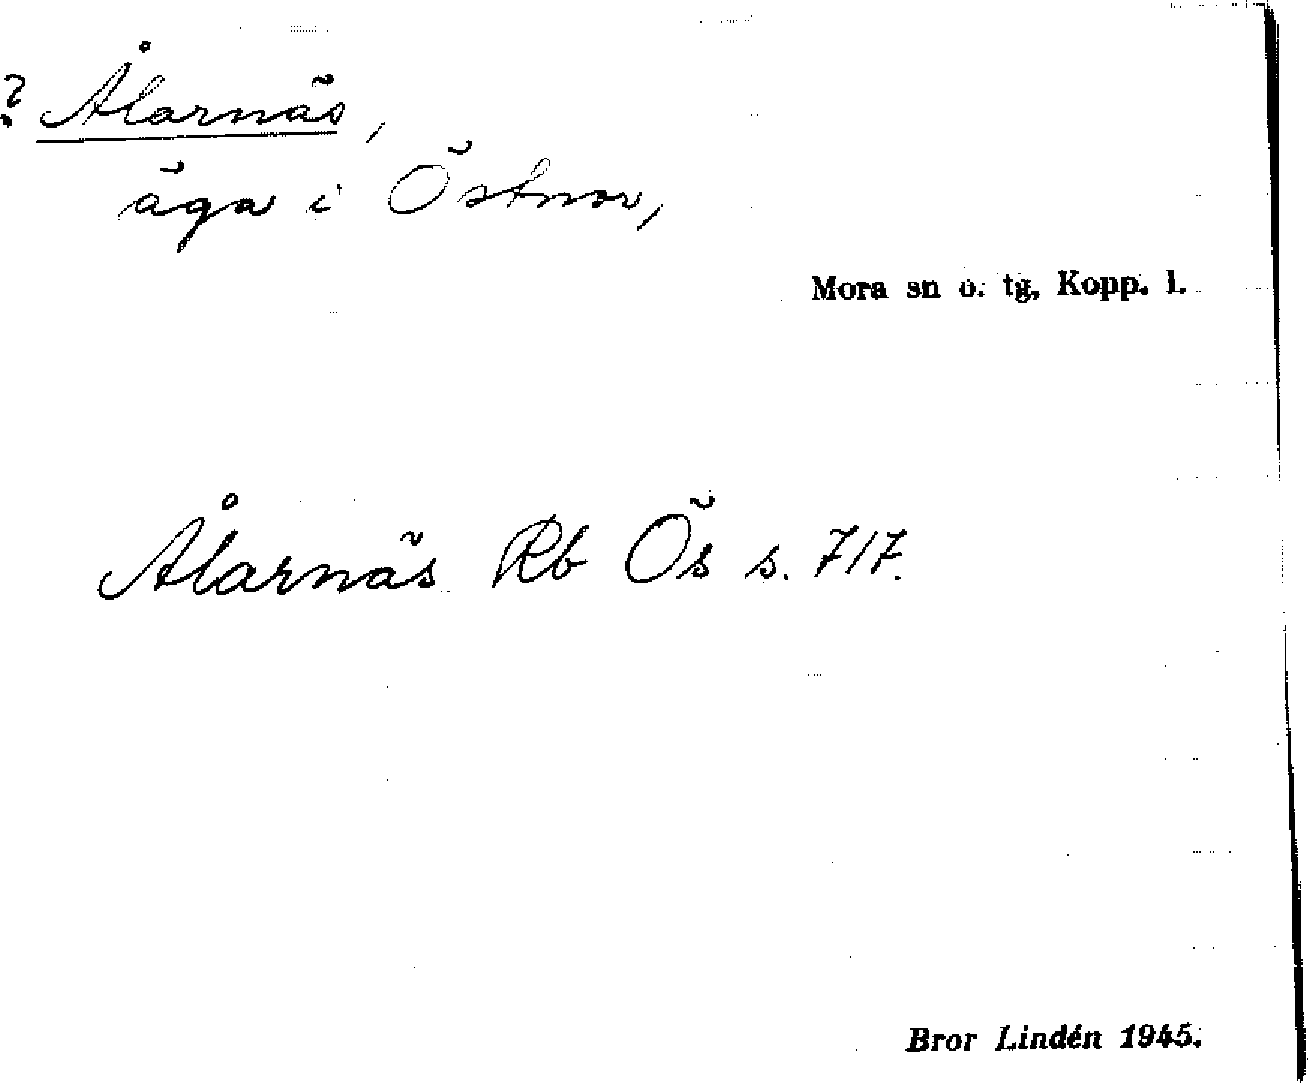 ? Ålarnäs,
äga i Östnor,
Mora sn o. tg, Kopp. l.
Ålarnäs Rb Ös s. 717.
Bror Lindén 1945.